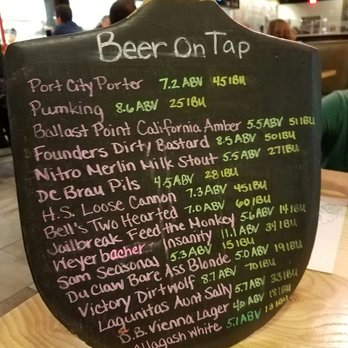 Beer On Tap
Port City Porter 7.2 ABV 45 IBU
Pumking 8.6 ABV 25 IBU
Ballast Point California Amber 5.5 ABV 51 IBU
Founders Dirty Bastard 8.5 ABV 50 IBU
Nitro Merlin Milk Stout 5.5 ABV 27 IBU
DC Brau Pils 4.5 ABV 28 IBU
H.S. Loose Cannon 7.3 ABV 45 IBU
Bell's Two Hearted 7.0 ABV 60 IBU
Jailbreak Feed the Monkey 5.6 ABV 14 IBU
Weyerbacher Insanity 11.1 ABV 34 IBU
Sam Seasonas 5.3 ABV 15 IBU
Du Claw Bare Ass Blonde 5.0 ABV 19 IBU
Victory Dirtwolf 8.7 ABV 70 IBU
Lagunitas Aunt Sally 5.7 ABV 33 IBU
B.B. Vienna Lager 4.0 ABV 18 IBU
Allagash White 5.1 ABV 13 IBU